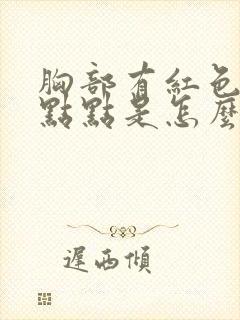 胸部有紅色
點點是怎麼
遲西傾